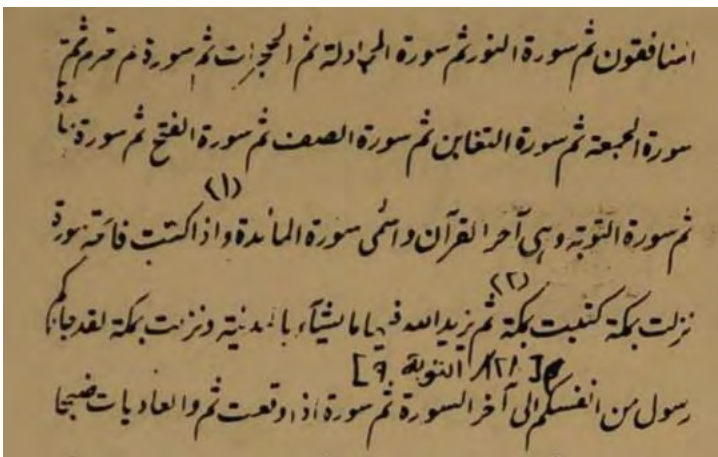 المنافقون ثم سورة النور ثم سورة المجادلة ثم الحجرات ثم سورة لم تحرم ثم
سورة الجمعة ثم سورة التغابن ثم سورة الصف ثم سورة الفتح ثم سورة المائدة
(١)
ثم سورة التوبة وهى آخر القرآن واسمى سورة المائدة واذا اكتتبت فاتحة سورة
(٢)
نزلت بمكة كتبت بمكة ثم يزيد الله فيها ما يشآء بالمدنية ونزلت بمكة لقد جاءكم
التوبة ٩]
رسول من انفسكم الى آخر السورة ثم سورة اذا وقعت ثم والعاديات ضبحا